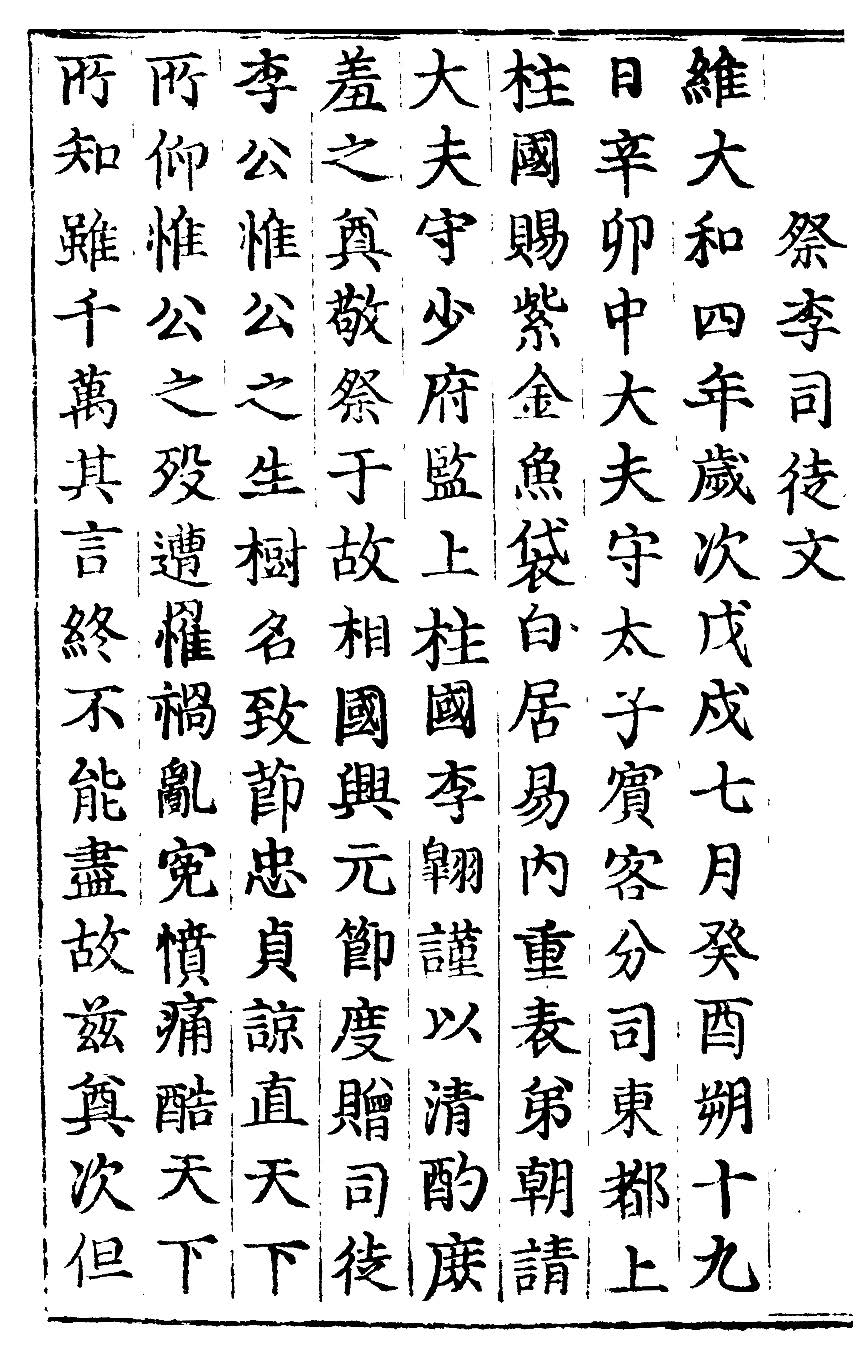 祭李司徒文
維大和四年歲次戊戌七月癸酉朔十九
日辛卯中大夫守太子賓客分司東都上
柱國賜紫金魚袋白居易內重表弟朝請
大夫守少府監上柱國李翶謹以清酌庶
羞之奠敬祭于故相國興元節度贈司徒
李公惟公之生樹名致節忠貞諒直天下
所仰惟公之歿遭罹禍亂寃憤痛酷天下
所知雖千萬其言終不能盡故兹奠次但